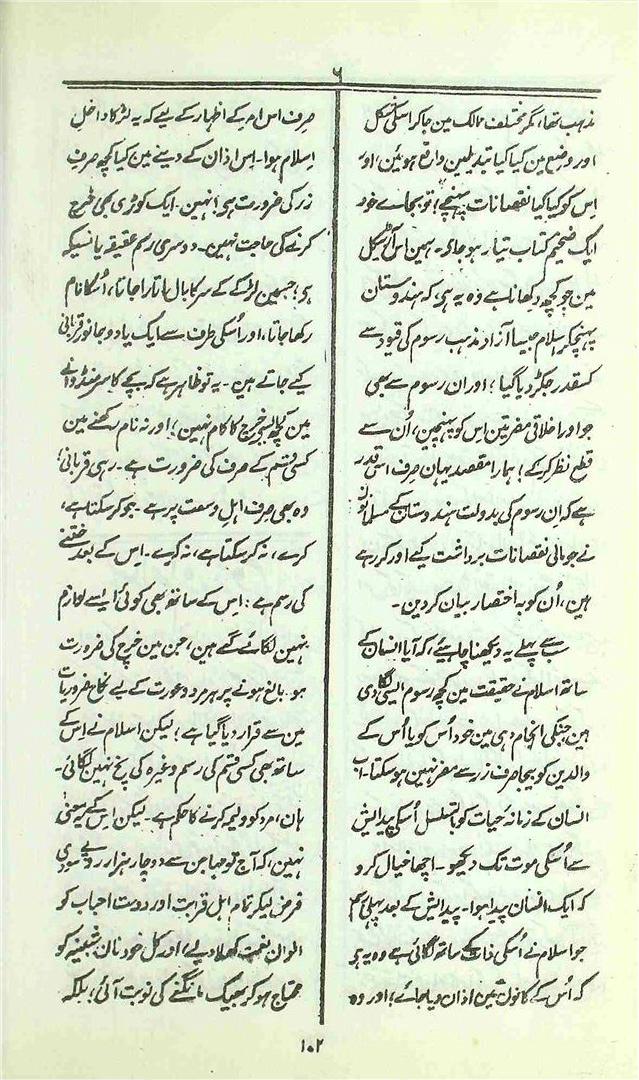 ۶
مذہب تھا، مگر مختلف ممالک مین جا کر اسکی شکل
اور وضع مین کیا کیا تبدیلین واقع ہوئین، اور
اس کو کیا کیا نقصانات پہنچے؛ تو بجاے خود
ایک ضخیم کتاب تیار ہو جاے۔ ہمین اس آرٹیکل
مین جو کچھ دکھانا ہے وہ یہ ہی، کہ ہندوستان
پہنچکر اسلام جیسا آزاد مذہب رسوم کی قیود سے
کسقدر جکڑ دیا گیا؛ اور ان رسوم سے بھی
جو اور اخلاقی مضرتین اس کو پہنچین، اُن سے
قطع نظر کر کے؛ ہمارا مقصد یہان صرف اسی قدر
ہے کہ اِن رسوم کی بدولت ہندوستان کے مسلمانون
نے جو مالی نقصانات برداشت کیے اور کر رہے
ہین، اُن کو بہ اختصار بیان کر دین۔
سب سے پہلے یہ دیکھنا چاہیئے، کہ آیا انسان کے
ساتھ اسلام نے حقیقت مین کچھ رسوم ایسی لگا دی
ہین جنکی انجام دہی مین خود اُس کو یا اُس کے
والدین کو بیجا صرف زر سے مفر نہین ہو سکتا۔ اب
انسان کے زمانہ حیات کو بالتسلسل اُسکی پیدائش
سے اُسکی موت تک دیکھو۔ اچھا خیال کرو
کہ ایک انسان پیدا ہوا۔ پیدائش کے بعد پہلی رسم
جو اسلام نے اُسکی ذات کے ساتھ لگائی ہے وہ یہ ہو
کہ اُس کے کانون مین اذان دیا جاے؛ اور وہ
صرف اس امر کے اظہار کے لیے کہ یہ لڑکا داخل
اِسلام ہوا۔ اِس اذان کے دینے مین کیا کچھ صرفِ
زر کی ضرورت ہی؛ نہین۔ ایک کوڑی بھی خرچ
کرنے کی حاجت نہین۔ دوسری رسم عقیقہ یا نسیکہ
ہی؛ جسمین لڑکے کے سر کا بال اتارا جاتا، اُسکا نام
رکھا جاتا، اور اُسکی طرف سے ایک یا دو جانور قربانی
کیے جاتے ہین۔ یہ تو ظاہر ہے کہ بچے کا سر منڈوانے
مین کچھ ایسی خرچ کا کام نہین؛ اور نہ نام رکھنے مین
کسی قسم کے صرف کی ضرورت ہے۔ رہی قربانی؛
وہ بھی صرف اہل وسعت پر ہے۔ جو کر سکتا ہے،
کرے، نہ کر سکتا ہے، نہ کرے۔ اس کے بعد ختنے
کی رسم ہے: اِس کے ساتھ بھی کوئی ایسے لوازم
نہین لگائے گے ہین، جن مین خرچ کی ضرورت
ہو۔ بالغ ہونے پر ہر مرد و عورت کے لیے نکاح ضروریات
مین سے قرار دیا گیا ہے؛ لیکن اسلام نے اس کے
ساتھ بھی کسی قسم کی رسم وغیرہ کی پخ نہین لگائی۔
ہان، مرد کو ولیمہ کرنے کا حکم ہے۔ لیکن اِس کے یہ معنی
نہین، کہ آج تو مہاجن سے دو چار ہزار روپے سودی
قرض لیکر تمام اہل قرابت اور دوست احباب کو
الوان نعمت کھلا دیے، اور کل خود نان شبینہ کو
محتاج ہو کر بھیک مانگنے کی نوبت آئی؛ بلکہ
۱۰۲